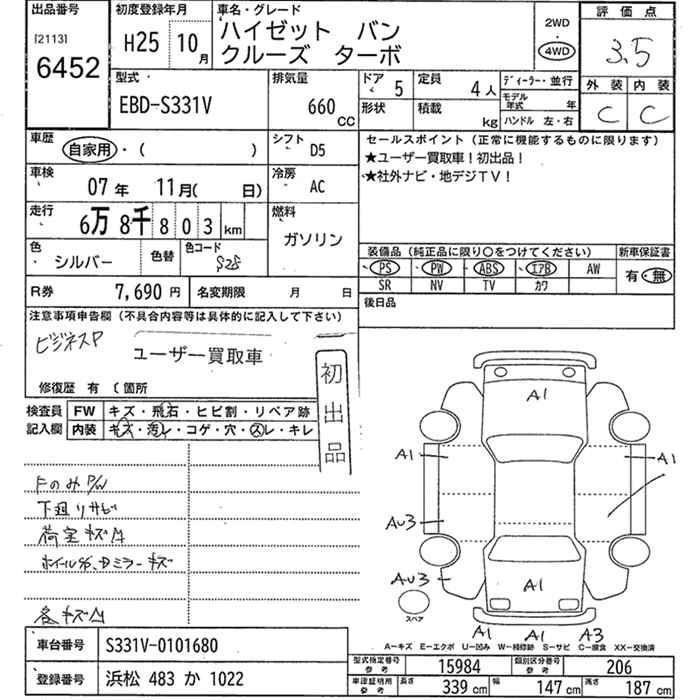 出品番号
[2113]
6452
初度登録年月
H25 10月
車名・グレード
ハイゼット バン
クルーズ ターボ
2WD
・
4WD
評価点
3.5
外装 内装
C C
型式
EBD-S331V
排気量
660
CC
ドア 5
形状
定員 4人
積載 kg
ディーラー・並行
モデル年式 年
ハンドル 左・右
車歴 自家用・( )
シフト D5
車検 07年 11月( 日)
冷房 AC
走行 6万8千803km
燃料 ガソリン
色 シルバー
色替
色コード S28
セールスポイント(正常に機能するものに限ります)
★ユーザー買取車!初出品!
★社外ナビ・地デジTV!
装備品(純正品に限り○をつけてください)
PS PW ABS エアB AW
SR NV TV カワ
新車保証書
有・無
R券 7,690円
名変期限 月 日
後日品
注意事項申告欄(不具合内容等は具体的に記入して下さい)
ビジネスP
ユーザー買取車
修復歴 有 〔箇所
初出品
検査員
記入欄
FW キズ・飛石・ヒビ割・リペア跡
内装 キズ・汚レ・コゲ・穴・スレ・キレ
FのみP/W
下廻りサビ
荷室キズ
ホイール
ミラーキズ
各キズ
A1
A1
A1
AU3
AU3
A1
A1 A1 A3
スペア
A-キズ E-エクボ U-凹み W-補修跡 S-サビ C-腐食 XX-交換済
車台番号 S331V-0101680
登録番号 浜松 483 か 1022
型式指定番号 参考 15984
類別区分番号 参考 206
車庫証明用 参考 長さ 339cm 幅 147cm 高さ 187cm